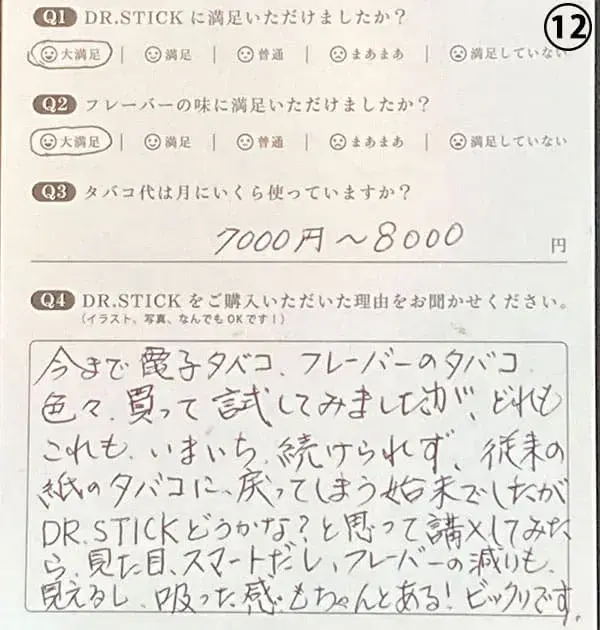 ⑫
Q1 DR.STICK に満足いただけましたか?
大満足 | 満足 | 普通 | まあまあ | 満足していない
Q2 フレーバーの味に満足いただけましたか?
大満足 | 満足 | 普通 | まあまあ | 満足していない
Q3 タバコ代は月にいくら使っていますか?
7000円～8000 円
Q4 DR.STICK をご購入いただいた理由をお聞かせください。
(イラスト、写真、なんでもOKです!)
今まで電子タバコ、フレーバーのタバコ
色々、買って試してみましたが、どれも
これも、いまいち、続けられず、従来の
紙のタバコに、戻ってしまう始末でしたが
DR.STICKどうかな?と思って講入してみた
ら、見た目、スマートだし、フレーバーの減りも、
見えるし、吸った感もちゃんとある!ビックリです。